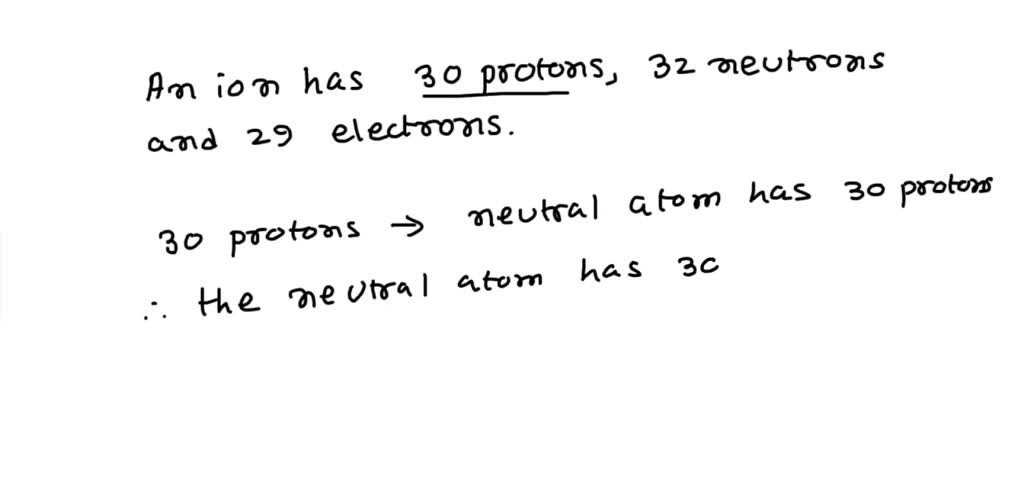 An ion has 30 protons, 32 neutrons
and 29 electrons.
30 protons → neutral atom has 30 protons
∴ the neutral atom has 30